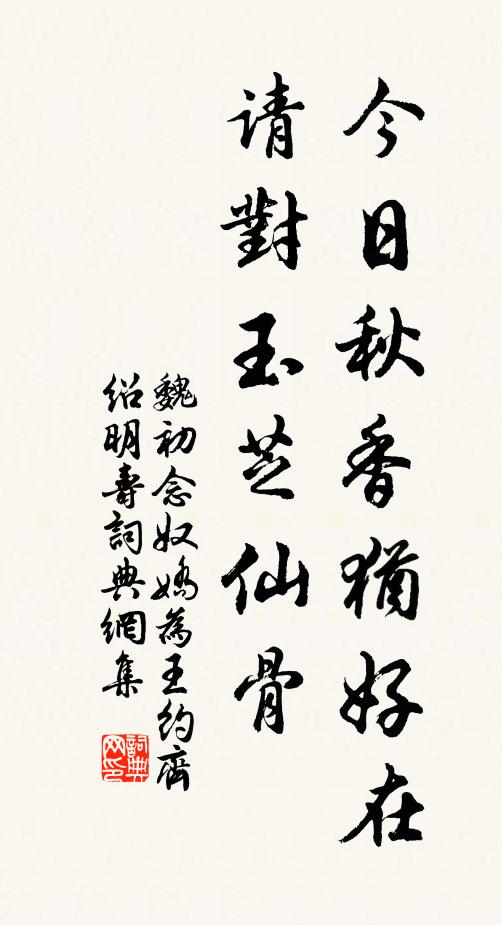 今日秋香犹好在
请對玉芝仙骨
魏初念奴嬌為王約齋
绍明壽詞典網集
詞典网印